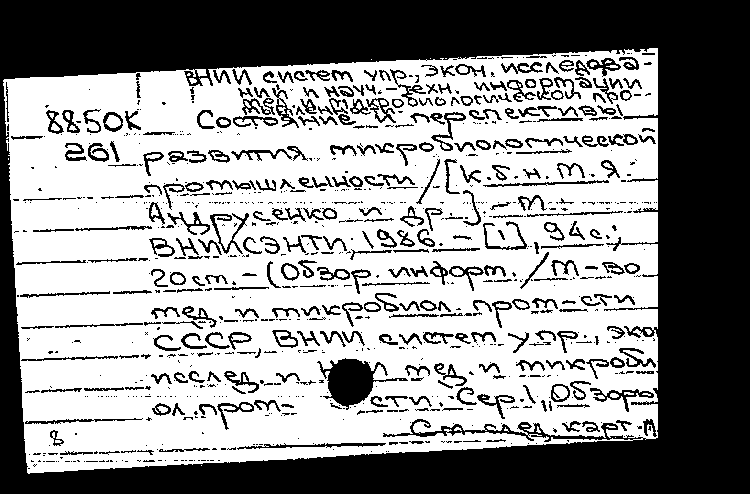 ВНИИ систем упр., экон. исследова-
ний и науч.-техн. информации
мед. и микробиологической про-
мышленности.
88-50К Состояние и перспективы
261 развития микробиологической
промышленности / [к.б.н. М.Я.
Андрусенко и др.] - М.:
ВНИИСЭНТИ, 1986. - [1], 94 с.;
20 см. - (Обзор. информ. / М-во
мед. и микробиол. пром-сти
СССР, ВНИИ систем упр., экон
исслед. и мед. и микроби
ол. пром- сти. Сер. 1, Обзоры
8 См. след. карт.